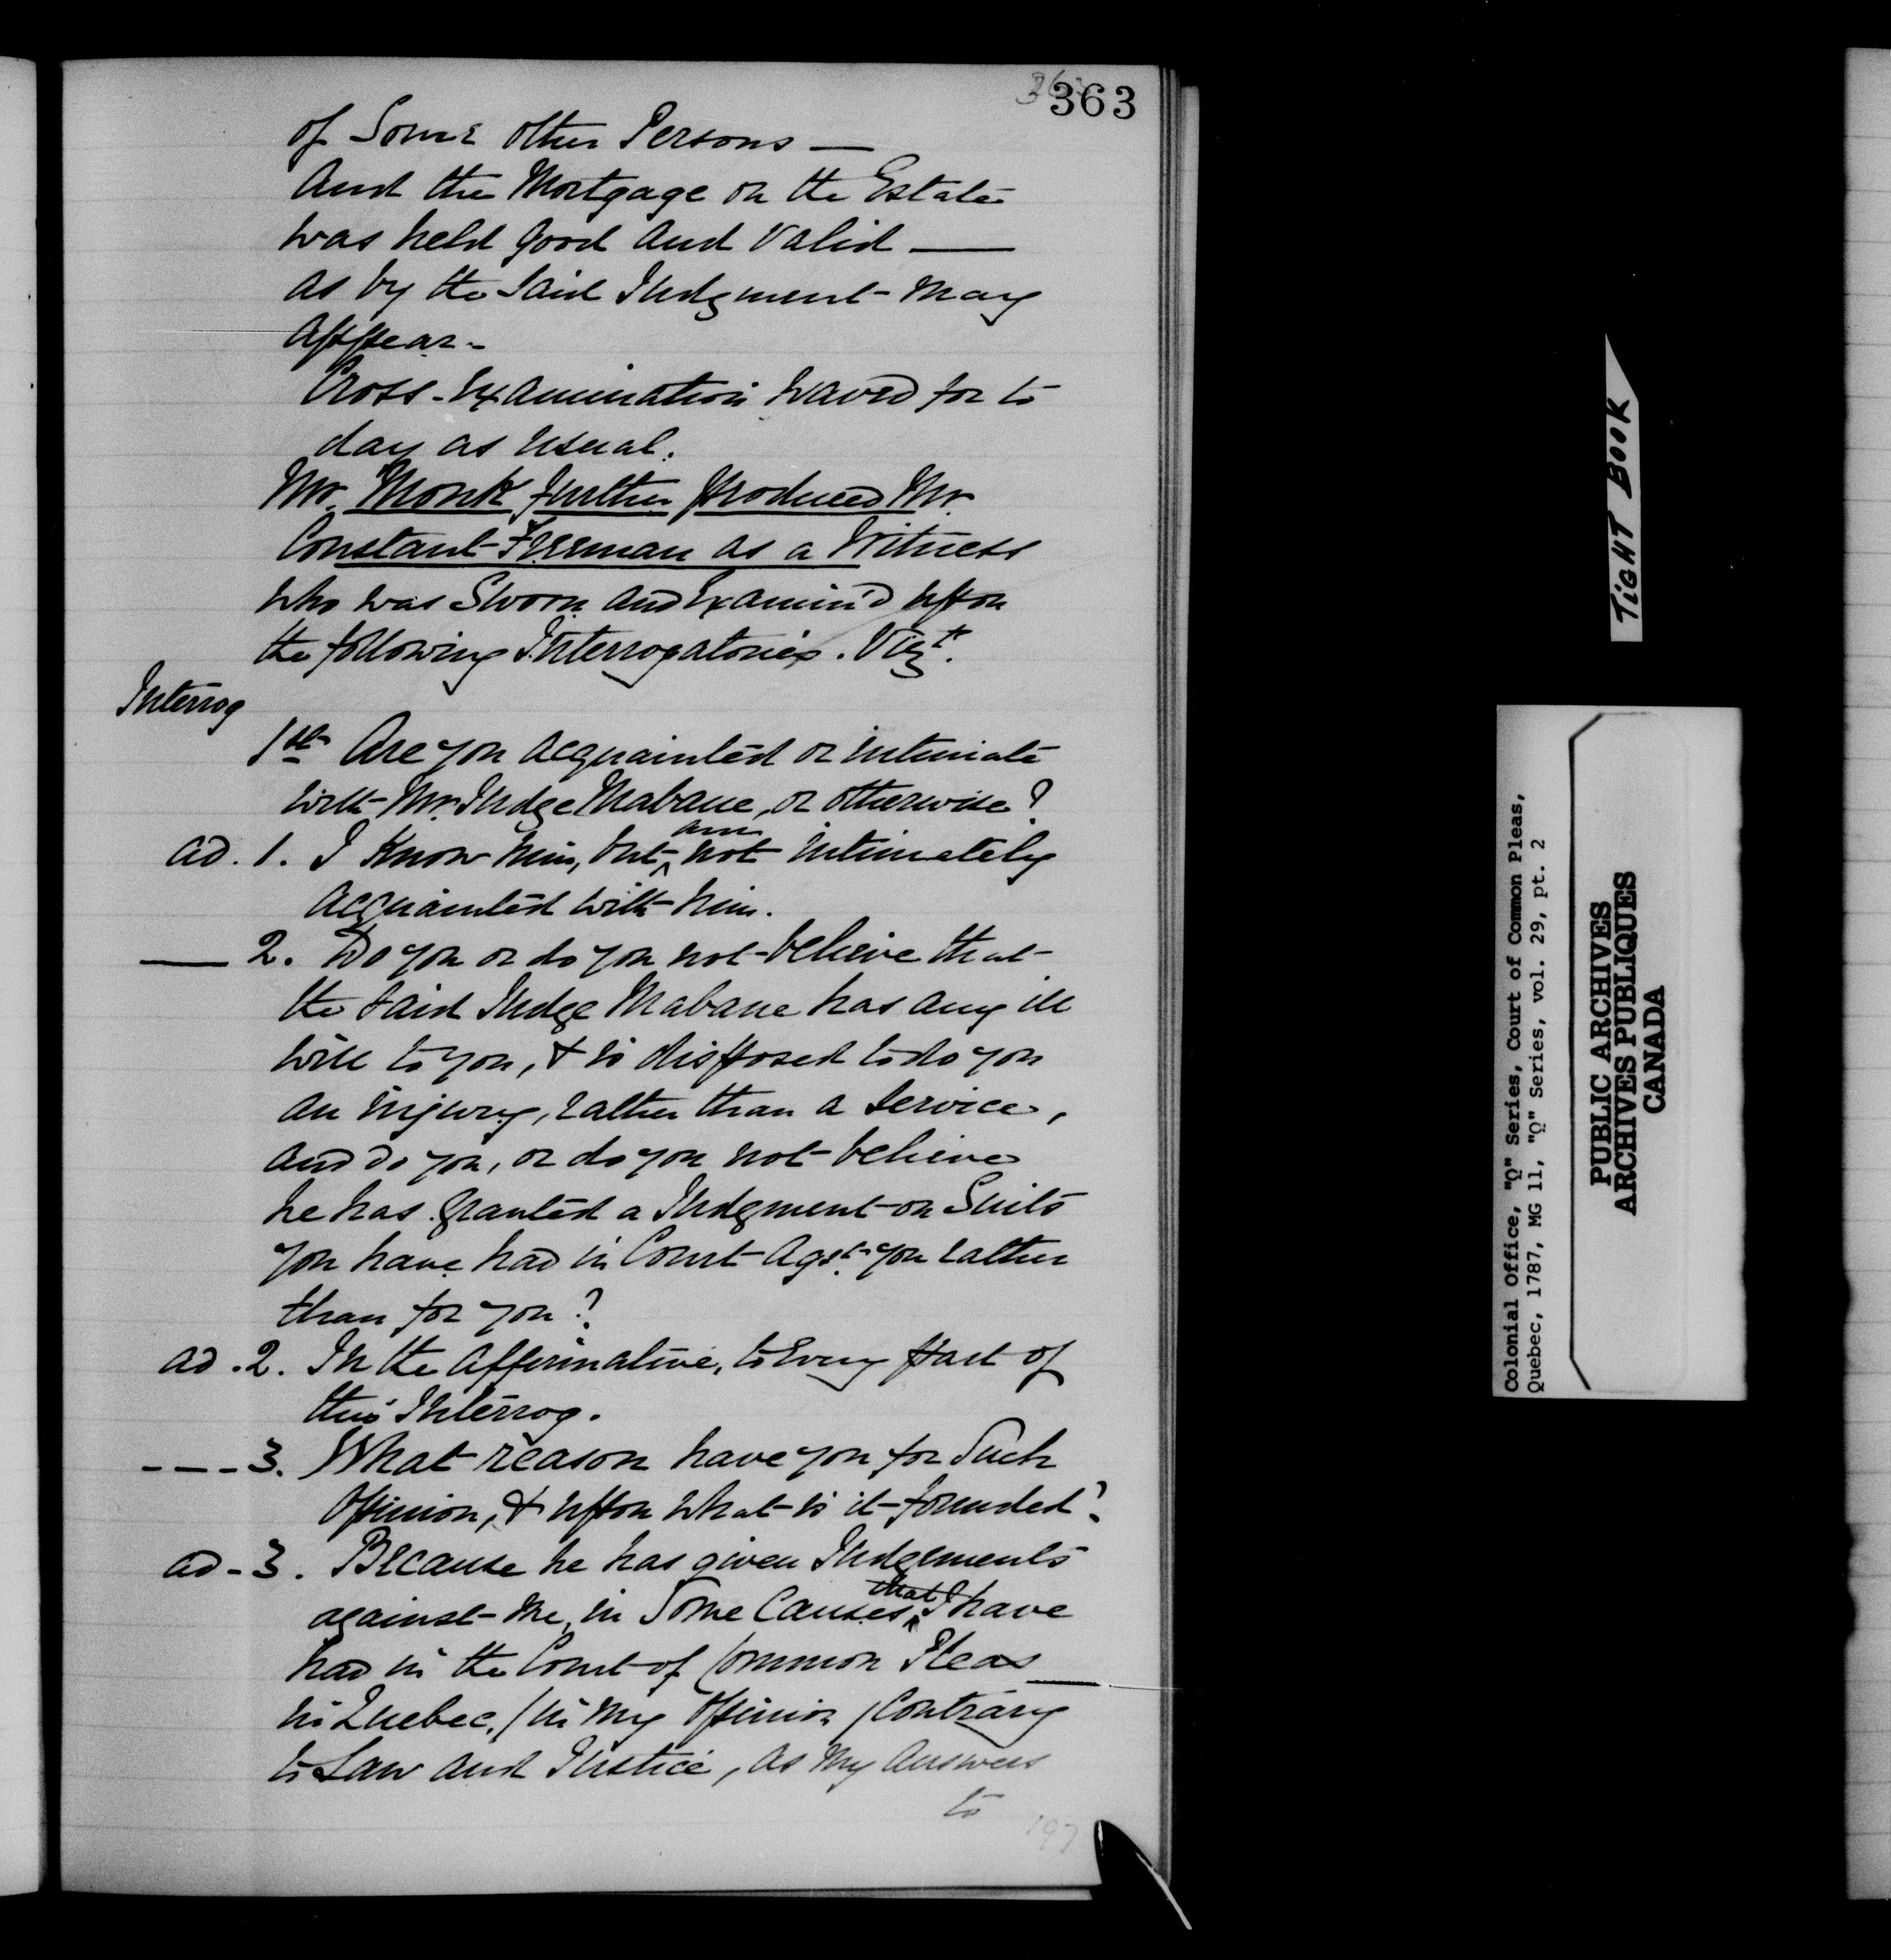 363
of Some other Persons —
And the Mortgage on the Estate
was held good and valid —
as by the said Judgment - may
appear -
Cross-Examination waved for to
day as usual.
Mr. Monk further produced Mr.
Constant Freeman as a Witness
who was Sworn and Examin'd upon
the following Interrogatories. Vizt.
Interrog
1st Are you acquainted or intimate
with Mr. Judge Mabane, or otherwise?
ad. 1. I Know him, but am not intimately
acquainted with him.
— 2. Do you or do you not believe that
the said Judge Mabane has any ill
will to you, & is disposed to do you
an injury, rather than a service,
and do you, or do you not believe
he has granted a Judgment on Suits
you have had in Court Agst. you rather
than for you?
ad. 2. In the affirmative, to Every part of
this Interrog.
- - - 3. What reason have you for Such
Opinion, & upon what is it founded?
ad - 3. Because he has given Judgements
against me, in Some Causes, that I have
had in the Court of Common Pleas
in Quebec, (in my opinion) Contrary
to Law and Justice, as my answers
to
197
TIGHT BOOK
Colonial Office, "Q" Series, Court of Common Pleas,
Quebec, 1787, MG 11, "Q" Series, vol. 29, pt. 2
PUBLIC ARCHIVES
ARCHIVES PUBLIQUES
CANADA